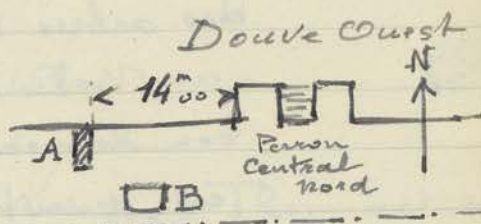 Douve Ouest
N
< 14ᵐ00 >
A
Perron
Central
Nord
B